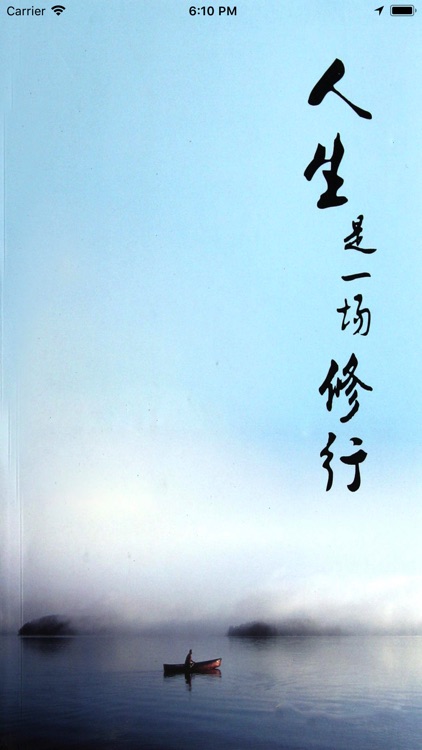 Carrier 6:10 PM
人生是一场修行